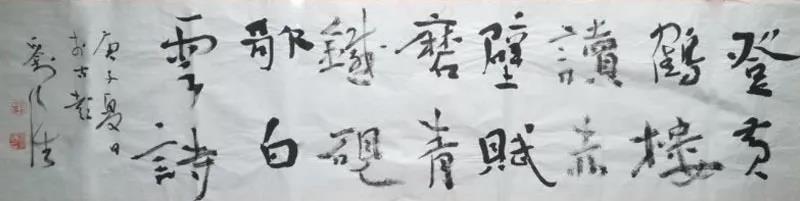 登黄
鶴樓
讀赤
壁賦
磨青
鐵硯
歌白
雲詩
庚子夏日
於古彭
劉